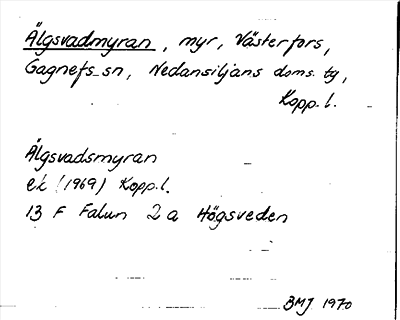 Älgsvadmyran, myr, Västerfors,
Gagnefs sn, Nedansiljans doms. tg,
Kopp. l.
Älgsvadsmyran
ek (1969) Kopp. l.
13 F Falun 2 a Högsveden
BMJ 1970